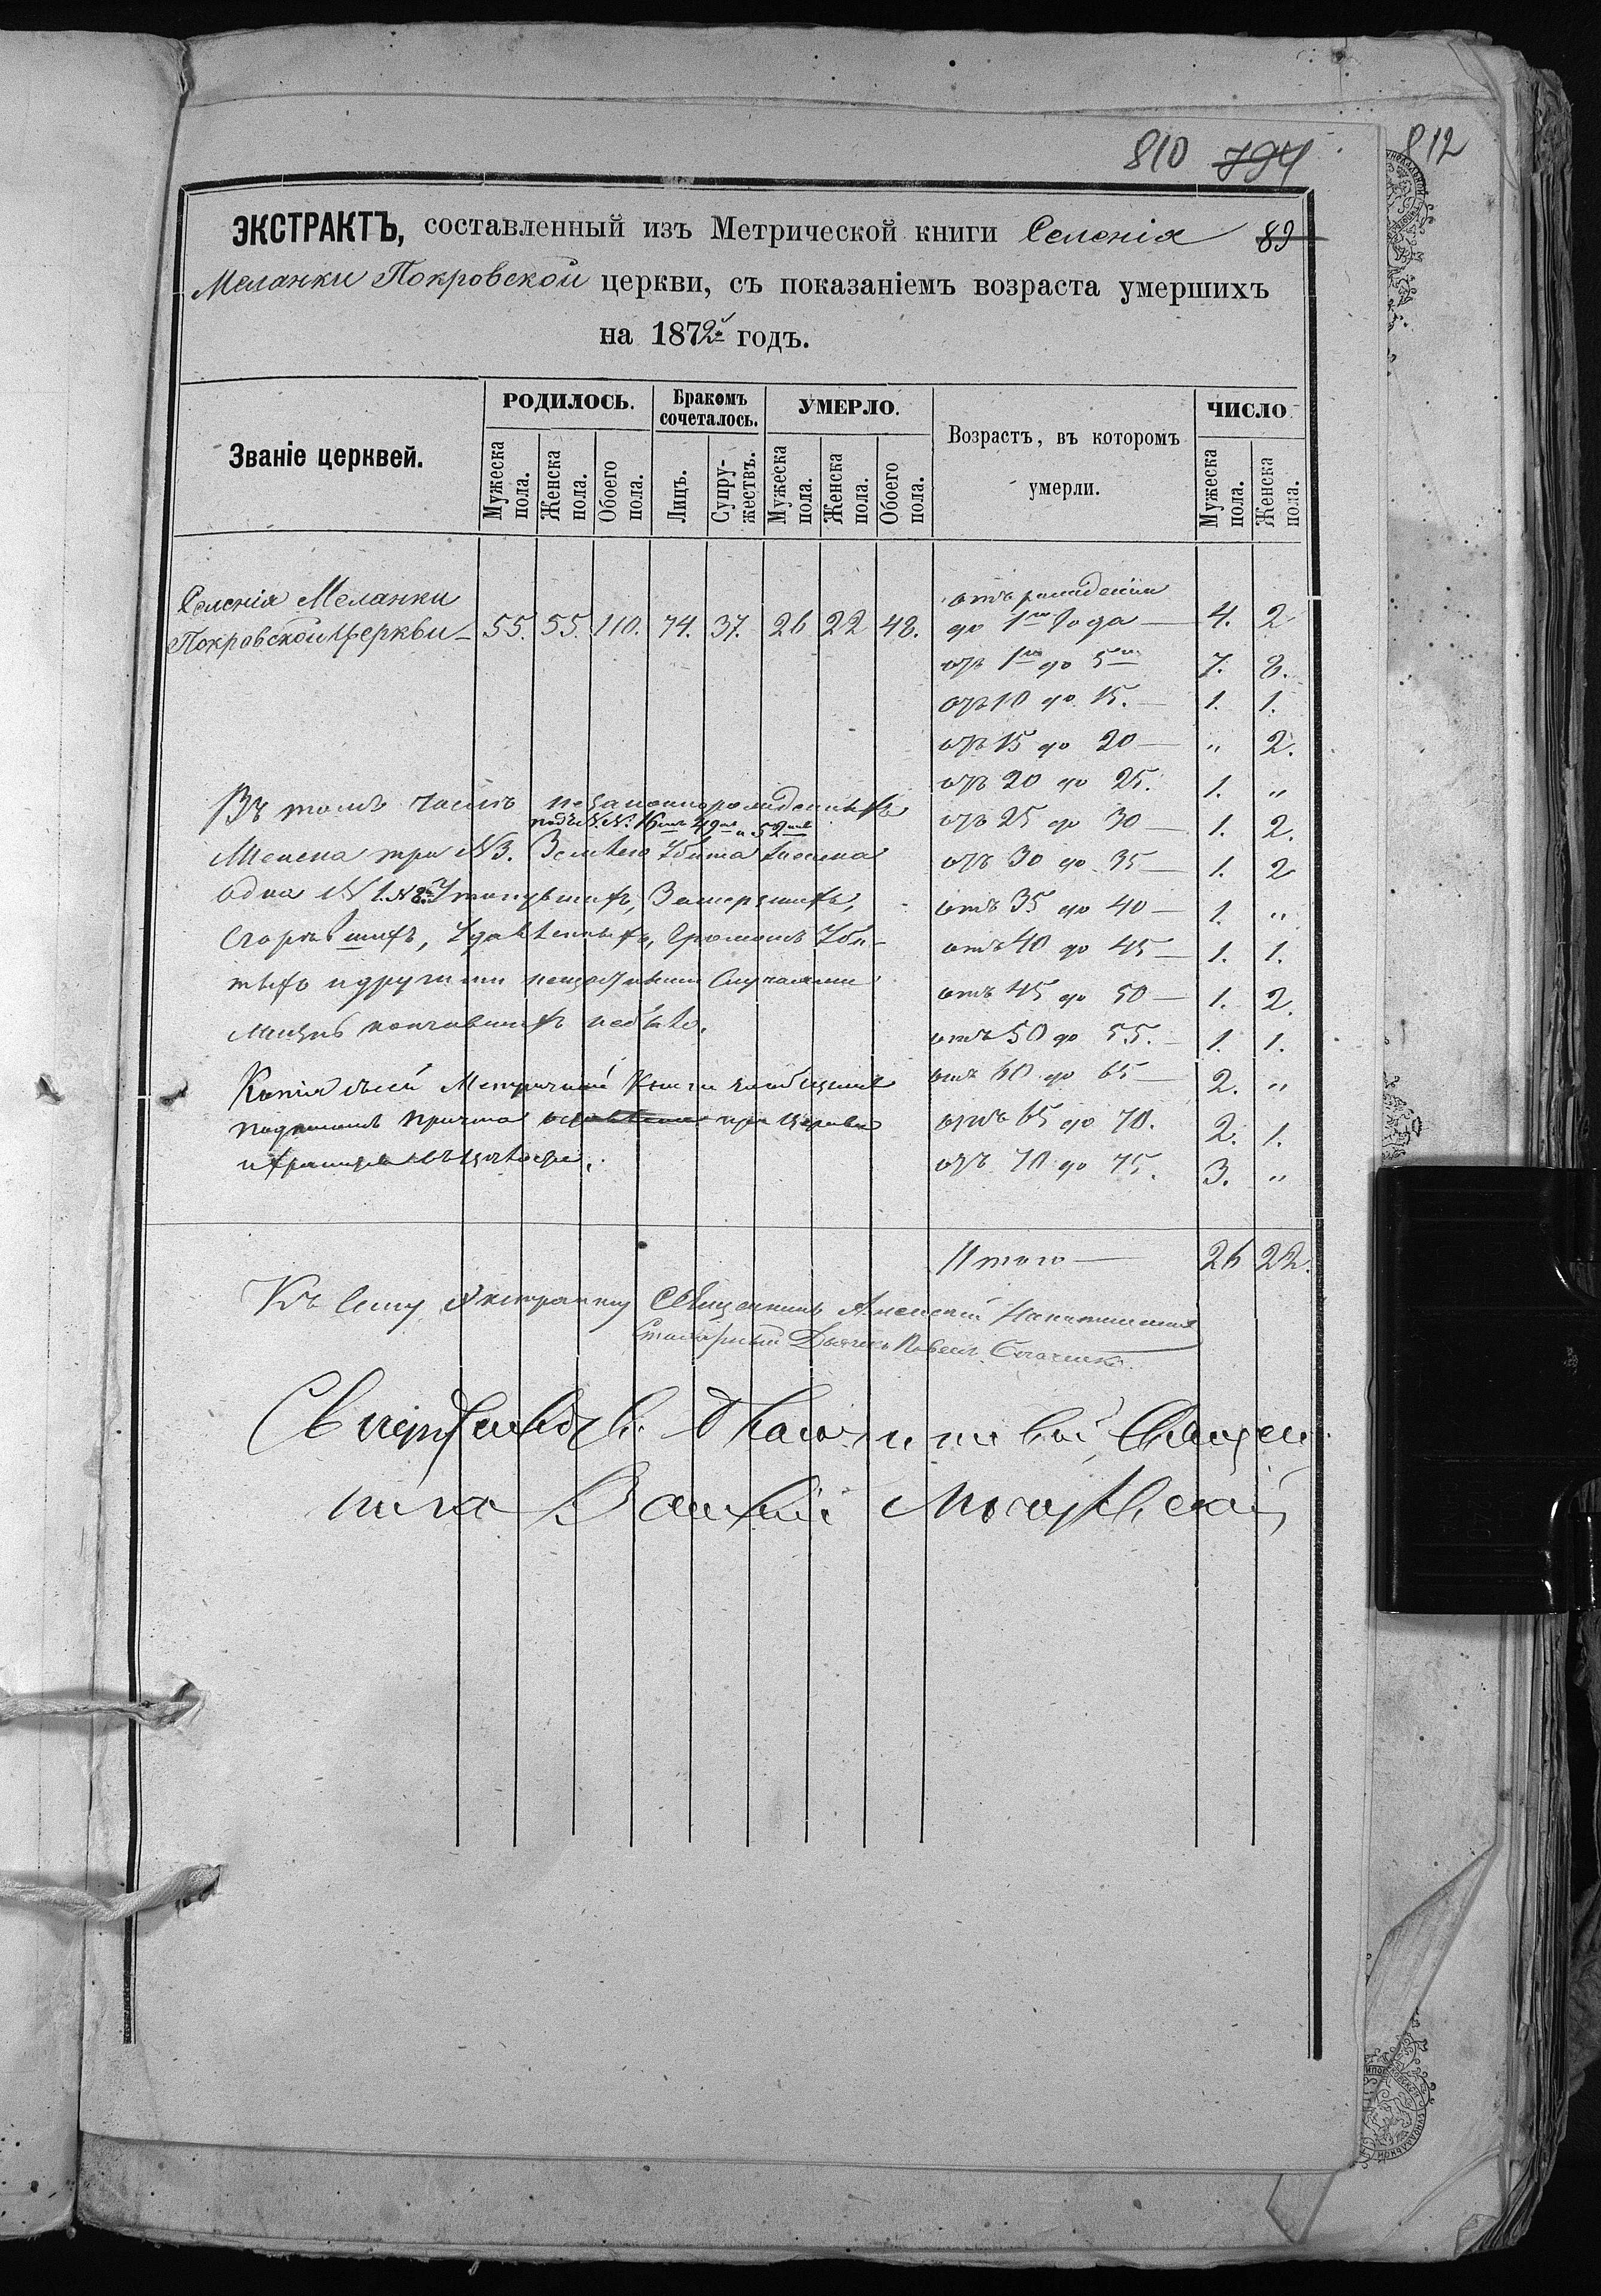 810 794
812
ЭКСТРАКТЪ, составленный изъ Метрической книги Селенія 89
Меланки Покровской церкви, съ показаніемъ возраста умершихъ
на 1872й годъ.
Званіе церквей. РОДИЛОСЬ. Бракомъ сочеталось. УМЕРЛО. Возрастъ, въ которомъ умерли. ЧИСЛО
Мужеска пола. Женска пола. Обоего пола. Лицъ. Супружествъ. Мужеска пола. Женска пола. Обоего пола. Мужеска пола. Женска пола.
Селенія Меланки отъ рожденія
Покровской Церкви 55. 55. 110. 74. 37. 26 22 48. до 1го Года 4. 2
отъ 1го до 5ти 7. 8.
отъ 10 до 15. 1. 1.
отъ 15 до 20 " 2.
отъ 20 до 25. 1. "
отъ 25 до 30 1. 2.
отъ 30 до 35 1. 2
отъ 35 до 40 1. "
отъ 40 до 45 1. 1.
отъ 45 до 50 1. 2.
отъ 50 до 55. 1. 1.
отъ 60 до 65 2. "
отъ 65 до 70. 2. 1.
отъ 70 до 75. 3. "
Въ томъ числѣ незаконнорожденныхъ
подъ N. N. 16мъ 49мъ и 52мъ
Женска три N 3. Землею Убита Женска
одна N 1. N 8. Утонувшихъ, Замерзшихъ,
Сгорѣвшихъ, Удавленныхъ, Громомъ Уби-
тыхъ и другими нещастными Случаями
Жизнь кончившихъ небыло.
Копія съ сей Метричной Книги за общимъ
подписомъ причта при Церкви
и хранится въ цѣлости.
Итого 26 22.
Къ сему Экстракту Священникъ Алексей
Дьячекъ Павелъ
Священ
ника